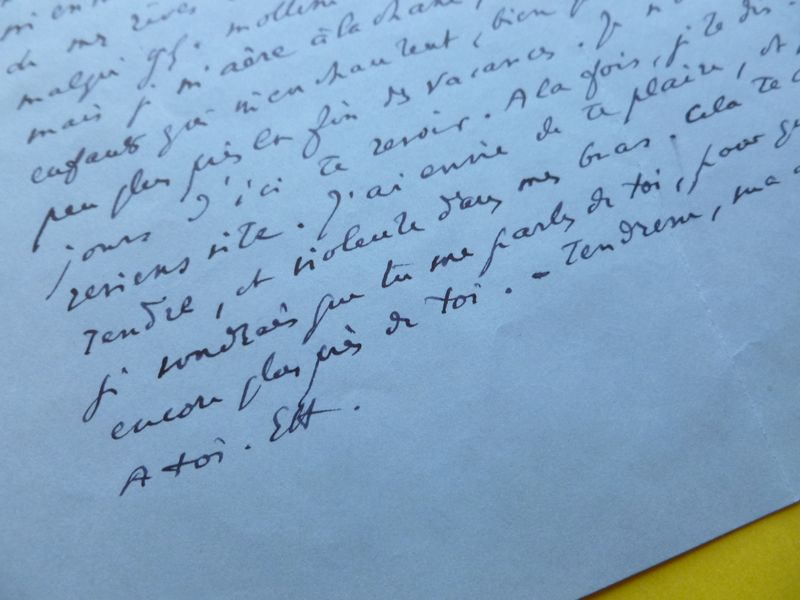 de mes rêves
malgré mollesse
mais je m'aère à la chasse,
enfants qui m'enchantent, bien
peu plus près la fin des vacances. Je
jours d'ici te revoir. A la fois, je te dis
reviens vite. J'ai envie de te plaire, et
tendre, et violente dans mes bras. Cela te
Je voudrais que tu me parles de toi, pour
encore plus près de toi. - Tendrem, ma
A toi.